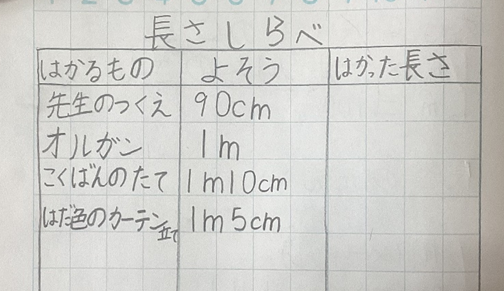 長さしらべ
はかるもの よそう はかった長さ
先生のつくえ 90cm
オルガン 1m
こくばんのたて 1m10cm
はだ色のカーテン立て 1m5cm